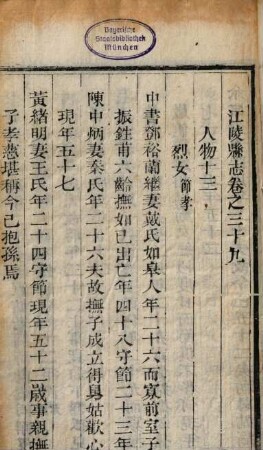 Bayerische
Staatsbibliothek
München
江陵縣志卷之三十九
人物十三
烈女 節孝
中書鄧裕蘭繼妻戴氏如皋人年二十六而寡前室子
振鉎甫六齡撫如己出亡年四十八守節二十三年
陳中炳妻秦氏年二十六夫故撫子成立得舅姑歡心
現年五十七
黃緒明妻王氏年二十四守節現年五十二歲事親撫
子孝慈堪稱今已抱孫焉